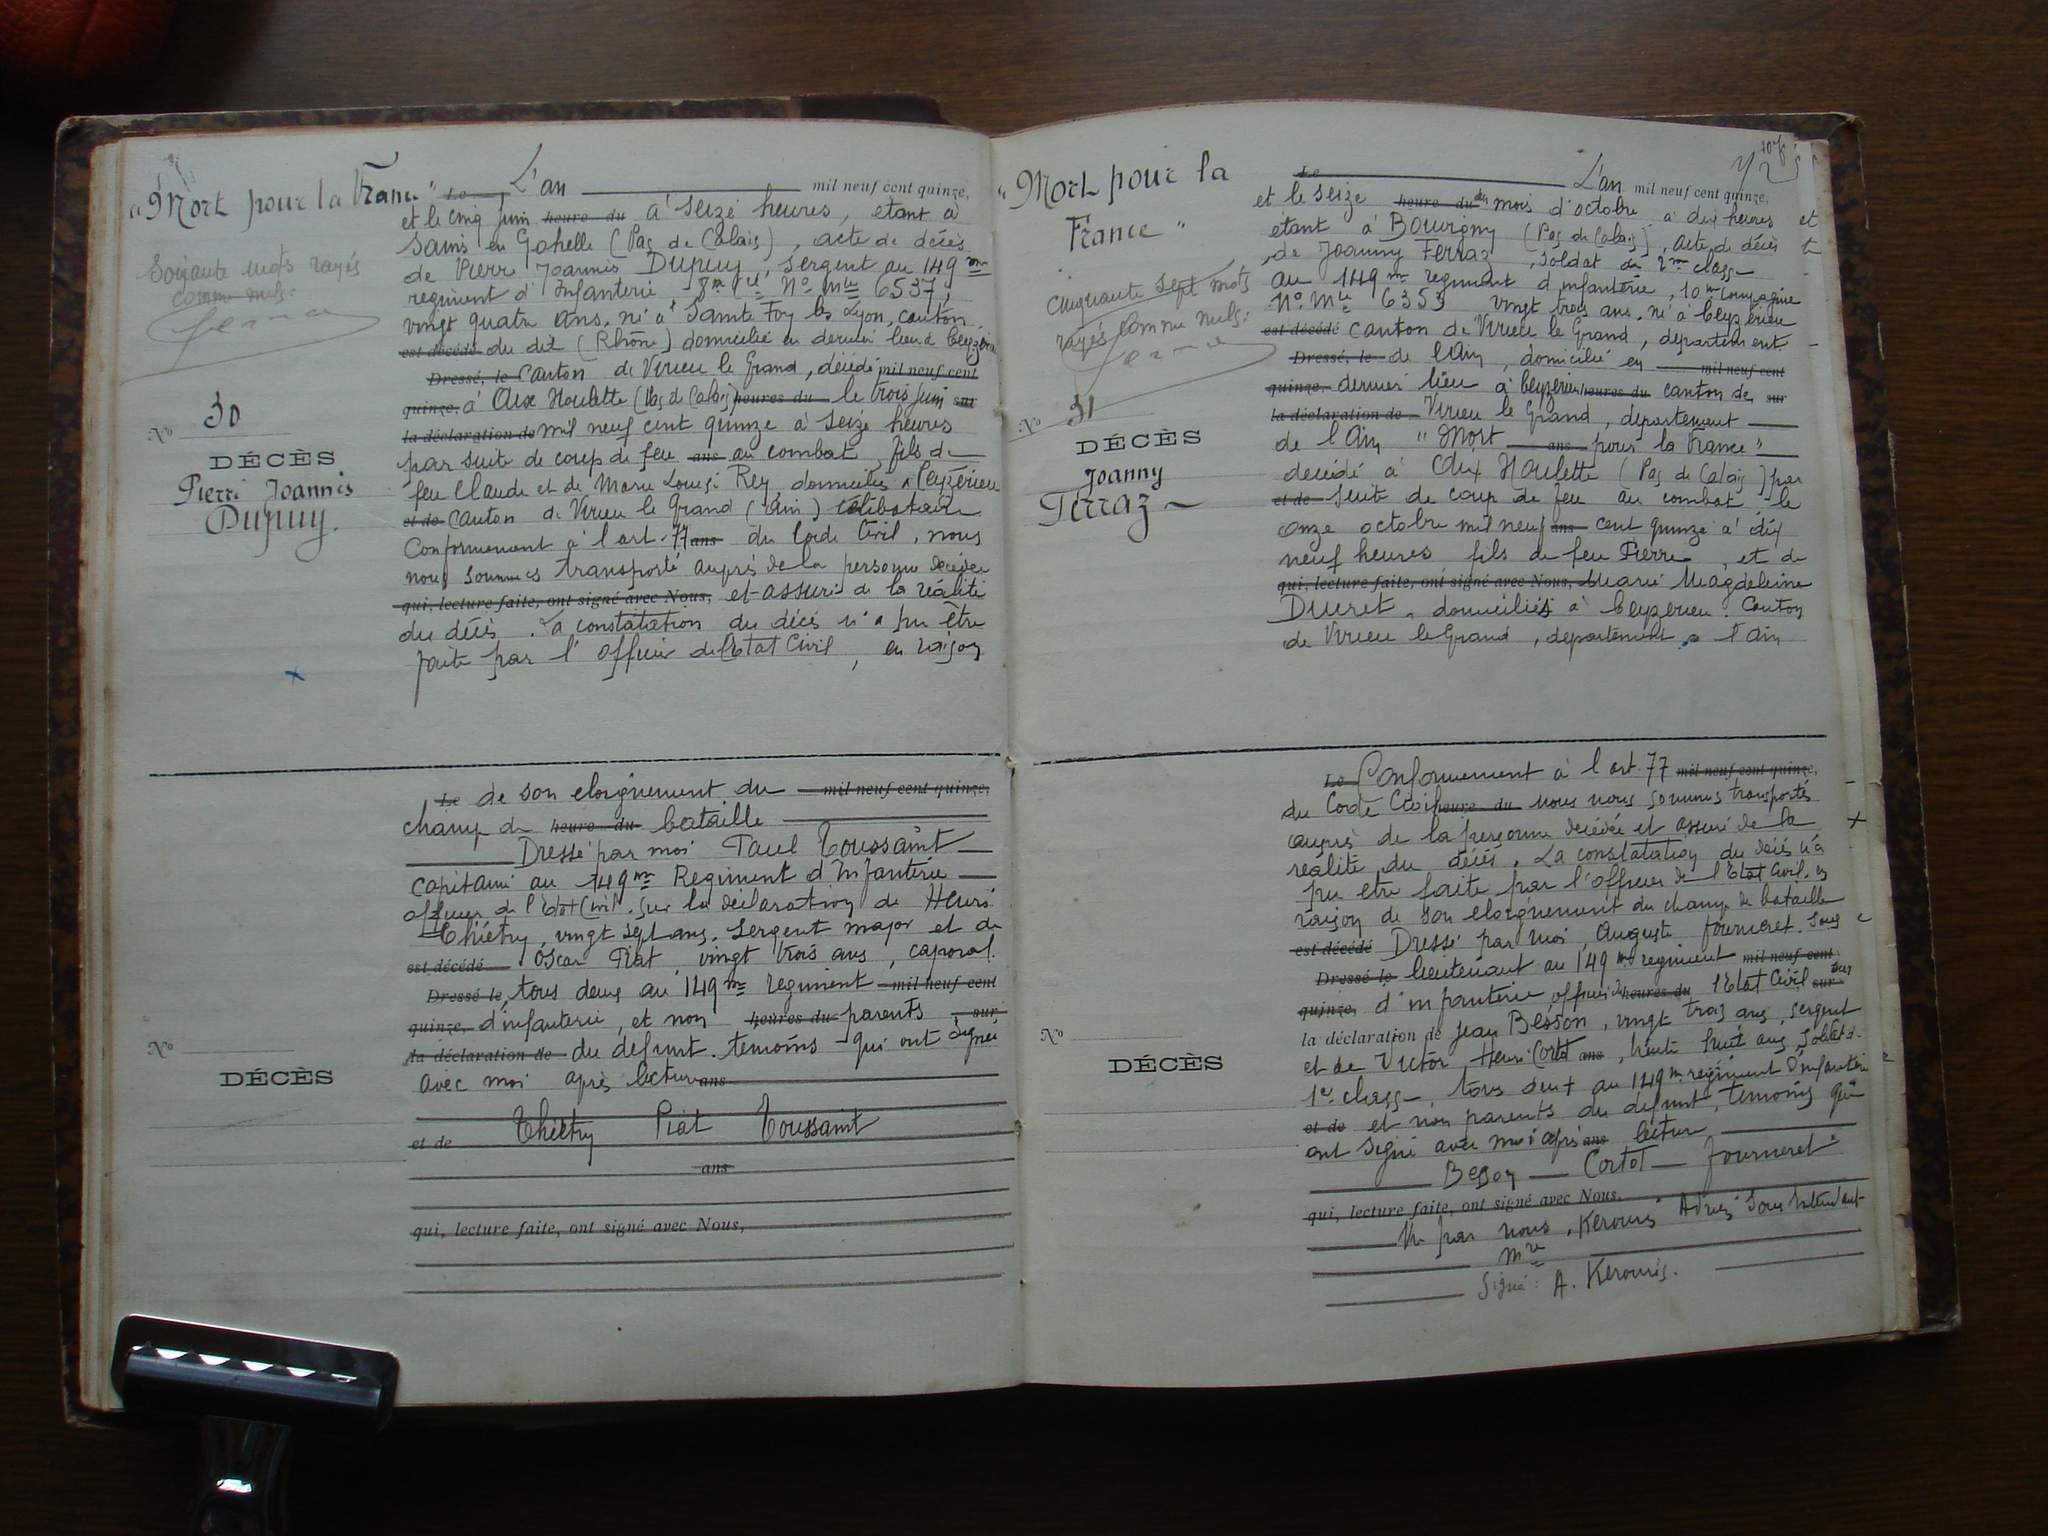 "Mort pour la France"
Soixante mots rayés
comme nuls.
No 30
DÉCÈS
Pierre Joannis
Dupuy.
Le L'an mil neuf cent quinze,
et le cinq juin heure du à seize heures, étant à
Sains en Gohelle (Pas de Calais), acte de décès
de Pierre Joannis Dupuy, sergent au 149me
regiment d'Infanterie 8me Cie No Mle 6537,
vingt quatre ans, né à Sainte Foy les Lyon, canton
est décédé du dit (Rhône) domicilié en dernier lieu à Ceyzérieu
Dressé, le canton de Virieu le Grand, décédé mil neuf cent
quinze, à Aix Noulette (Pas de Calais) heures du le trois juin sur
la déclaration de mil neuf cent quinze à seize heures
par suite de coup de feu ans au combat, fils de
feu Claude et de Marie Louise Rey, domiciliés à Ceyzérieu
et de canton de Virieu le Grand (Ain) célibataire
Conformement à l'art. 77 ans du Code Civil, nous
nous sommes transporté auprès de la personne décédée
qui, lecture faite, ont signé avec Nous, et assuré de la réalité
du décès. La constatation du décès n'a pu être
faite par l'officier de l'Etat Civil, en raison
No
DÉCÈS
Le de son eloignement du mil neuf cent quinze,
champ de heure du bataille
Dressé par moi Paul Toussaint
capitaine au 149me Regiment d'Infanterie
officier de l'Etat Civil. Sur la déclaration de Henri
Thiétry, vingt sept ans, sergent major et de
est décédé Oscar Piat, vingt trois ans, caporal.
Dressé le, tous deux au 149me regiment mil neuf cent
quinze, d'infanterie, et non heures du parents sur
la déclaration de du defunt. temoins qui ont signé
avec moi après lecture ans
et de Thiétry Piat Toussaint
ans
qui, lecture faite, ont signé avec Nous,
"Mort pour la
France"
cinquante sept mots
rayés comme nuls.
No 31
DÉCÈS
Joanny
Ferraz
Le L'an mil neuf cent quinze,
et le seize heure du du mois d'octobre à dix heures
étant à Bouvigny (Pas de Calais), acte de décès
de Joanny Ferraz, soldat de 2me classe
au 149me regiment d'infanterie, 10me Compagnie
No Mle 6353 vingt trois ans, né à Ceyzérieu
est décédé canton de Virieu le Grand, département
Dressé, le de l'Ain, domicilié en mil neuf cent
quinze, dernier lieu à Ceyzerieu heures du canton de sur
la déclaration de Virieu le Grand, département
de l'Ain "Mort ans pour la France"
décédé à Aix Noulette (Pas de Calais) par
et de suite de coup de feu au combat le
onze octobre mil neuf ans cent quinze à dix
neuf heures fils de feu Pierre, et de
qui, lecture faite, ont signé avec Nous, Marie Magdeleine
Duret, domiciliés à Ceyzerieu. Canton
de Virieu le Grand, departement l'Ain
No
DÉCÈS
Le Conformement à l'art. 77 mil neuf cent quinze,
du Code Civil heure du nous nous sommes transportés
auprès de la personne décédée et assuré de la
réalité du décès. La constatation du décès n'a
pu etre faite par l'officier de l'Etat Civil, en
raison de son eloignement du champ de bataille
est décédé Dressé par moi, Auguste Fourneret. Sous
Dressé le lieutenant au 149me regiment mil neuf cent
quinze, d'infanterie officier de heures du l'Etat Civil sur
la déclaration de Jean Besson, vingt trois ans, sergent
et de Victor Henri Cortot ans, trente huit ans, soldat
1re classe, tous deux au 149me regiment d'infanterie
et de et non parents du defunt, temoins qui
ont signé avec moi après ans lecture
Besson Cortot Fourneret
qui, lecture faite, ont signé avec Nous,
Vu par nous, Kerouris Adrien Sous Intendant
Mre
Signé: A. Kerouris.